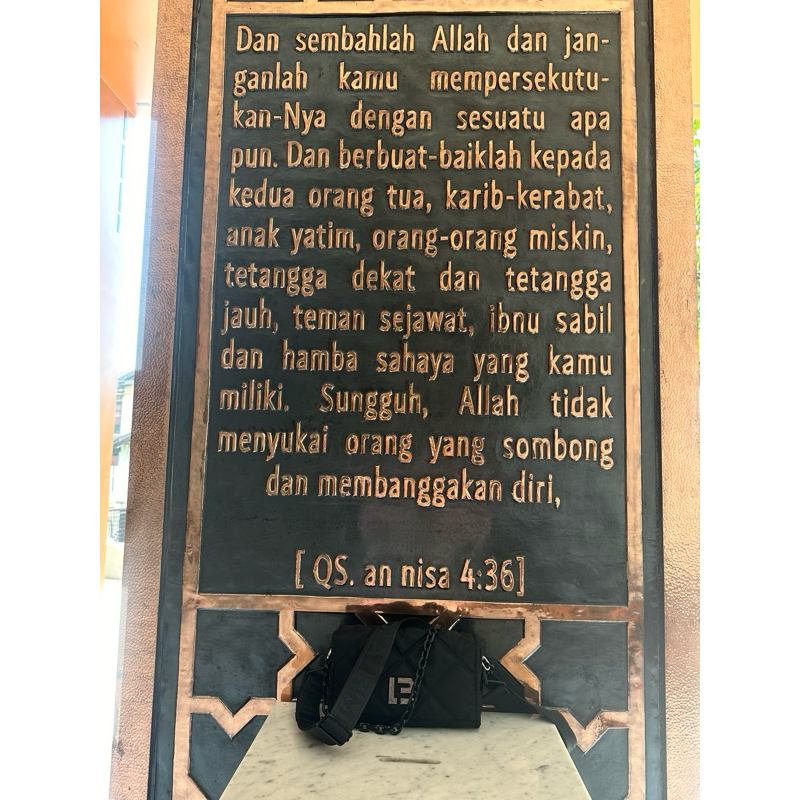 Dan sembahlah Allah dan jan-
ganlah kamu mempersekutu-
kan-Nya dengan sesuatu apa
pun. Dan berbuat-baiklah kepada
kedua orang tua, karib-kerabat,
anak yatim, orang-orang miskin,
tetangga dekat dan tetangga
jauh, teman sejawat, ibnu sabil
dan hamba sahaya yang kamu
miliki. Sungguh, Allah tidak
menyukai orang yang sombong
dan membanggakan diri,
[ QS. an nisa 4:36]